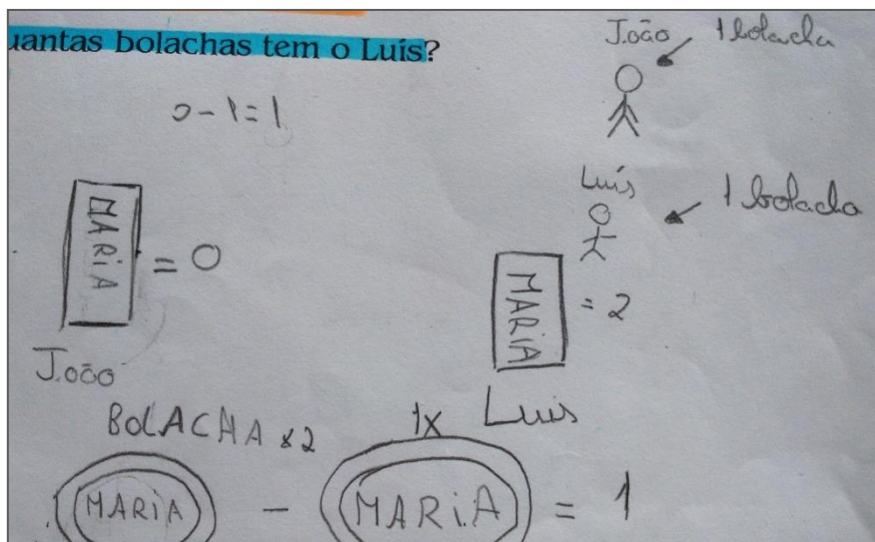 uantas bolachas tem o Luís?
João 1 bolacha
0-1=1
Luís 1 bolacha
MARIA = 0
MARIA = 2
João
Luis
BOLACHA x2 1x
MARIA - MARIA = 1